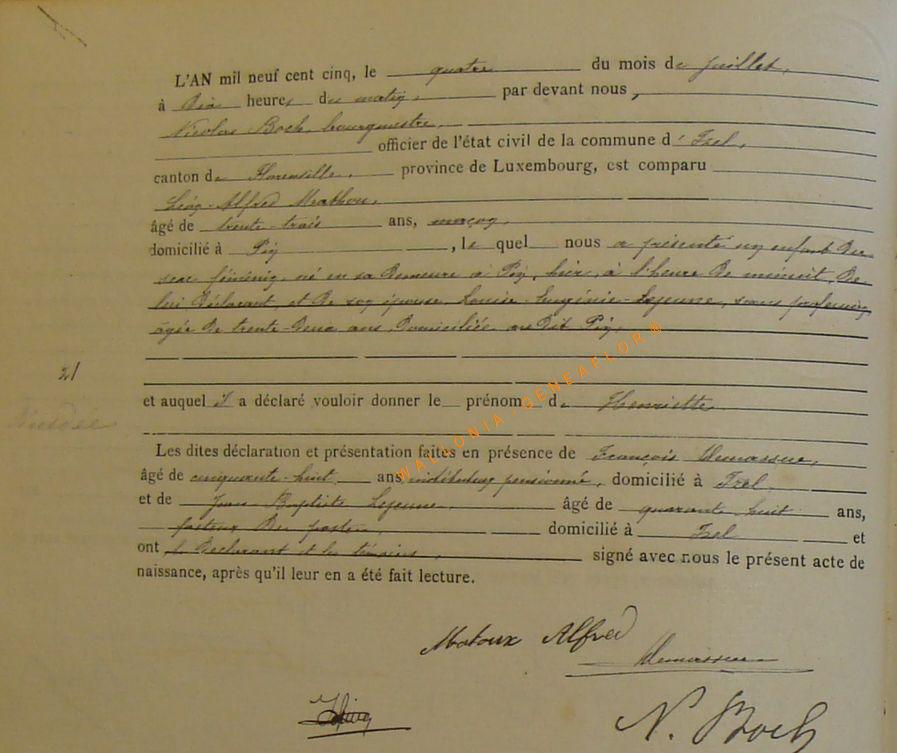 L'AN mil neuf cent cinq, le quatre du mois de juillet,
à dix heures du matin, par devant nous,
Nicolas Boch, bourgmestre,
officier de l'état civil de la commune d'Izel,
canton de Florenville, province de Luxembourg, est comparu
Léon-Alfred
âgé de trente-trois ans, maçon,
domicilié à Pin, le quel nous a présenté un enfant du
sexe féminin, né en sa demeure à Pin, hier, à l'heure de minuit, de
lui déclarant, et de son épouse, Louise-Eugénie-Lejeune, sans profession,
âgée de trente-deux ans, domiciliée au dit Pin,
21
et auquel il a déclaré vouloir donner le prénom de Henriette
Les dites déclaration et présentation faites en présence de François Demasseur,
âgé de cinquante-huit ans instituteur pensionné, domicilié à Izel
et de Jean Baptiste Lejeune, âgé de quarante huit ans,
facteur des postes, domicilié à Izel et
ont le déclarant et les témoins, signé avec nous le présent acte de
naissance, après qu'il leur en a été fait lecture.
WALLONIA.GENEAFLOR®
Matoux Alfred
N. Boch